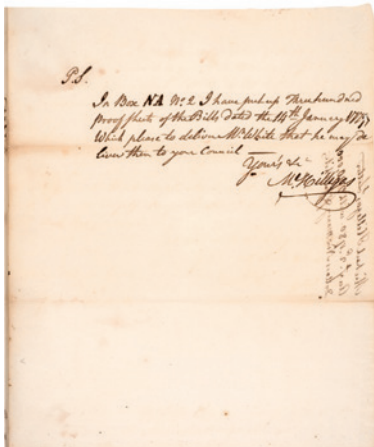 P.S.
In Box NA No. 2 I have put up Three hundred
proof sheets of the Bills dated the 14th January 1779
Which please to deliver Mr. White that he may de
liver them to your Council —
Yours &c
M. Hillegas